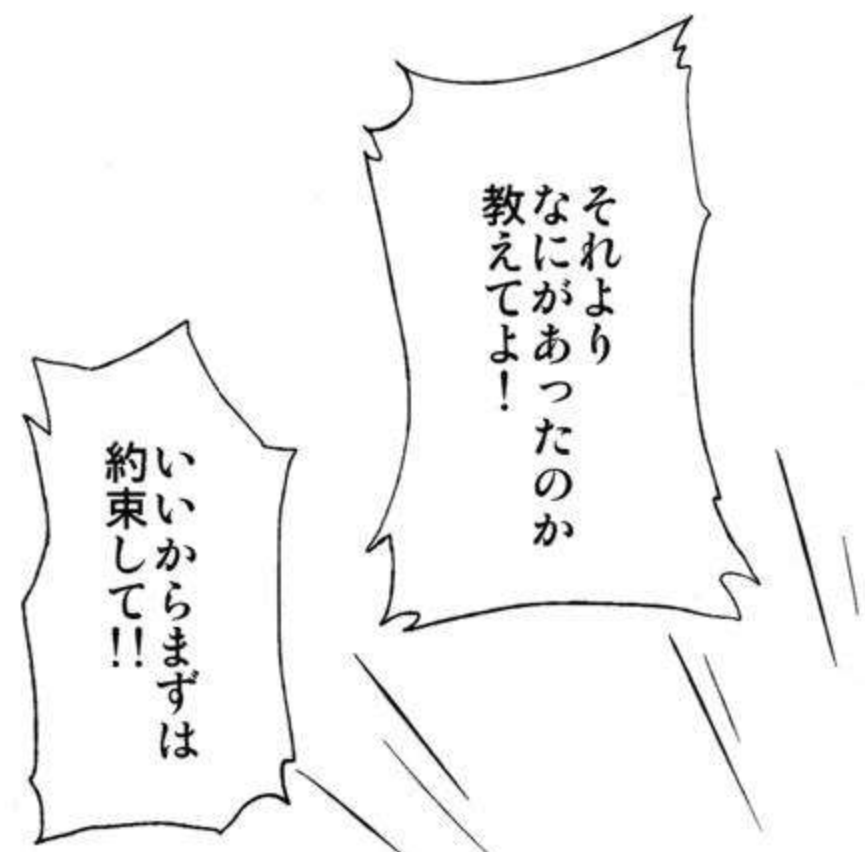 それより
なにがあったのか
教えてよ！
いいからまずは
約束して!!